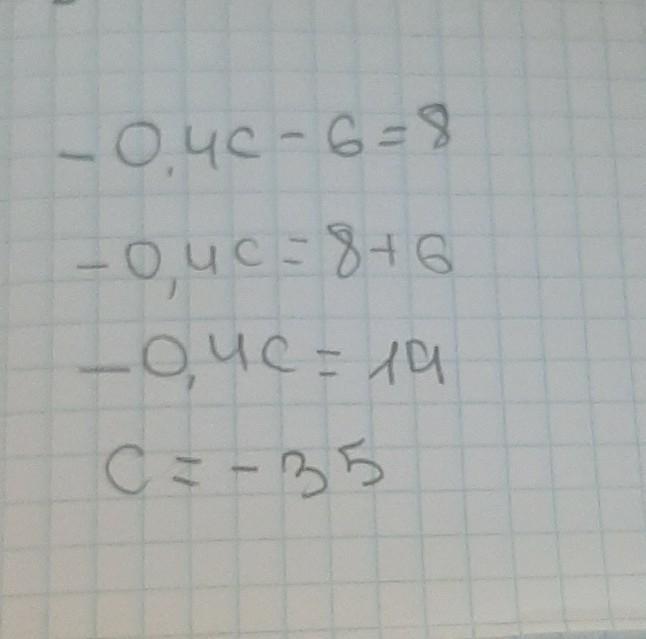 -0,4c-6=8
-0,4c=8+6
-0,4c=14
c=-35